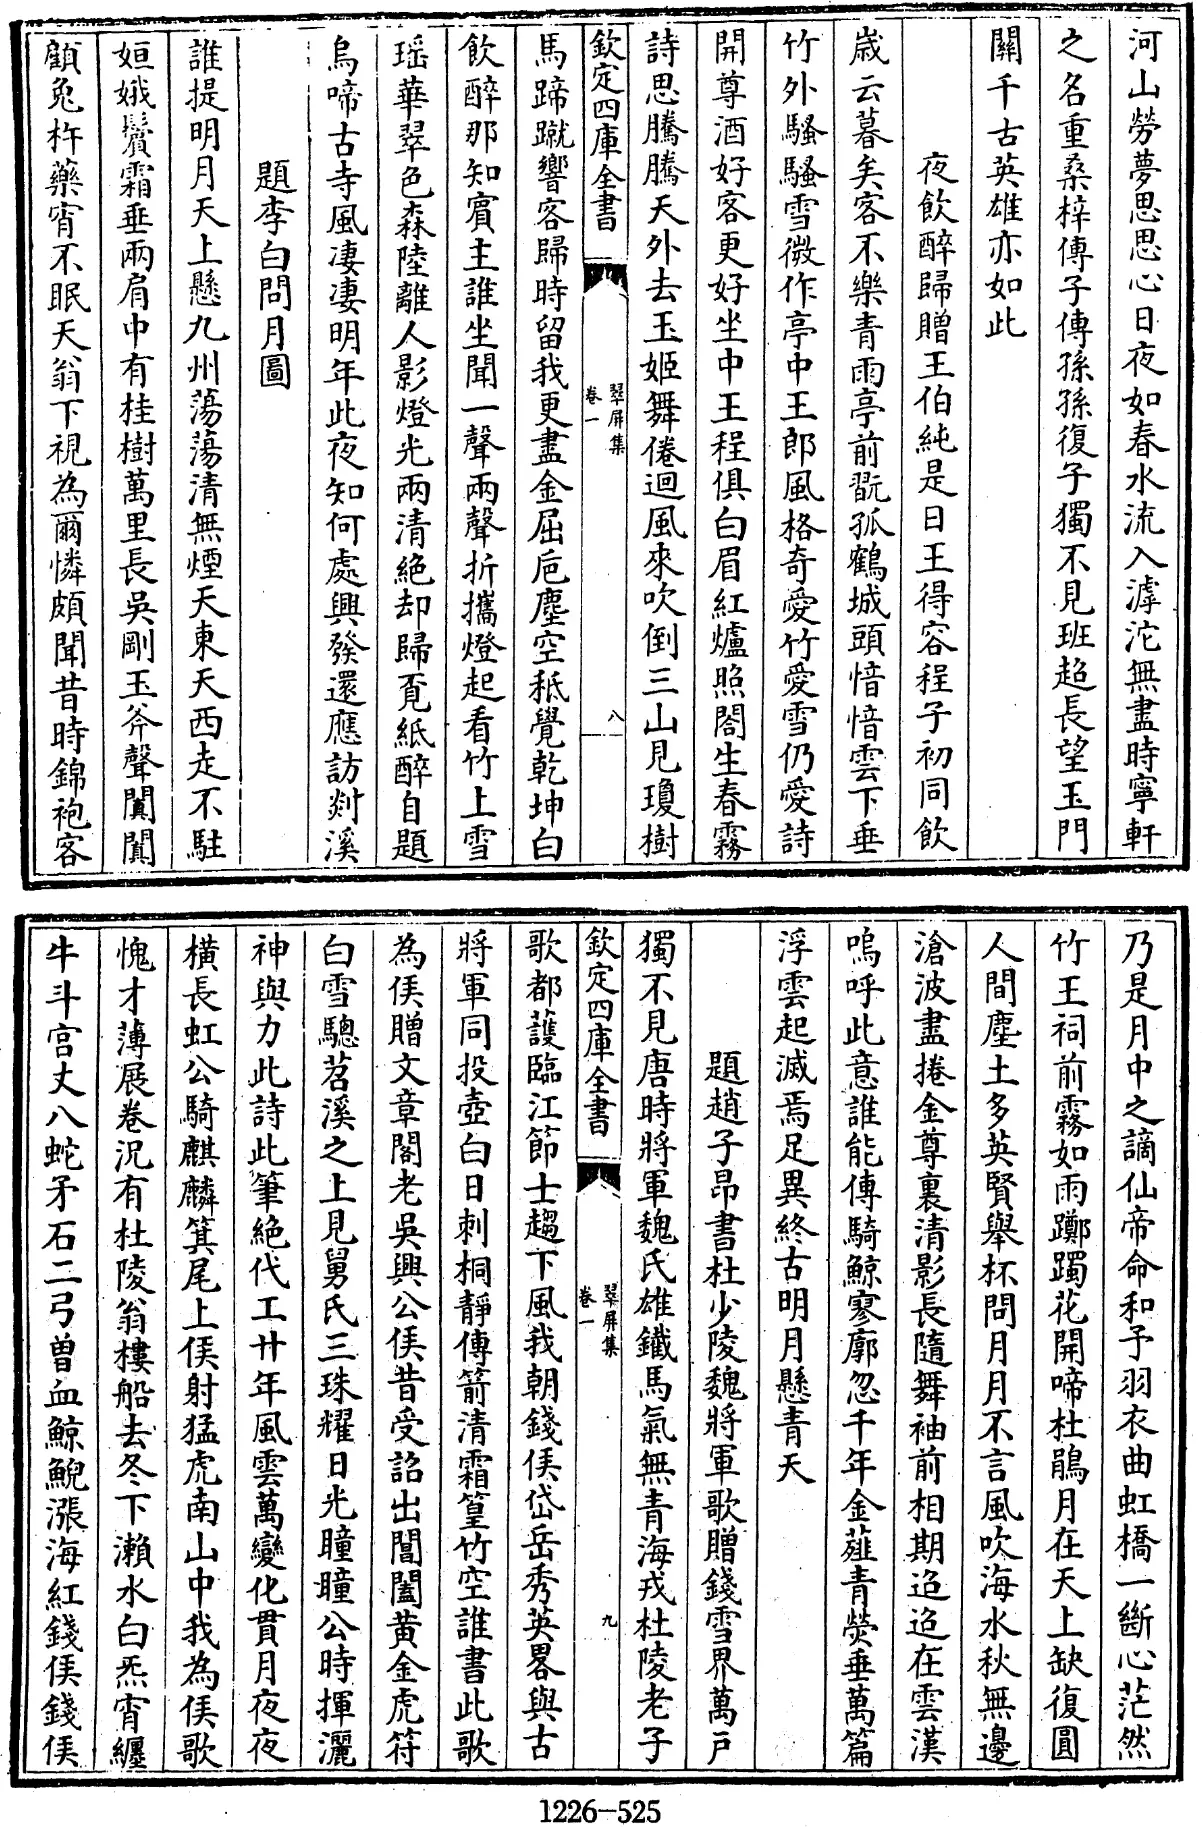 河山勞夢思思心日夜如春水流入滹沱無盡時寧軒
之名重桑梓傳子傳孫孫復子獨不見班超長望玉門
關千古英雄亦如此
夜飲醉歸贈王伯純是日王得容程子初同飲
歲云暮矣客不樂青雨亭前翫孤鶴城頭愔愔雲下垂
竹外騷騷雪微作亭中王郎風格奇愛竹愛雪仍愛詩
開尊酒好客更好坐中王程俱白眉紅爐照閤生春霧
詩思騰騰天外去玉姬舞倦迴風來吹倒三山見瓊樹
欽定四庫全書
翠屏集
卷一
八
馬蹄蹴響客歸時留我更盡金屈巵塵空秪覺乾坤白
飲醉那知賓主誰坐聞一聲兩聲折攜燈起看竹上雪
瑶華翠色森陸離人影燈光兩清絕却歸覔紙醉自題
烏啼古寺風凄凄明年此夜知何處興發還應訪剡溪
題李白問月圖
誰提明月天上懸九州蕩蕩清無煙天東天西走不駐
姮娥鬢霜垂兩肩中有桂樹萬里長吳剛玉斧聲闐闐
顧兔杵藥宵不眠天翁下視為爾憐頗聞昔時錦袍客
乃是月中之謫仙帝命和予羽衣曲虹橋一斷心茫然
竹王祠前霧如雨躑躅花開啼杜鵑月在天上缺復圓
人間塵土多英賢舉杯問月月不言風吹海水秋無邊
滄波盡捲金尊裏清影長隨舞袖前相期迢迢在雲漢
嗚呼此意誰能傳騎鯨寥廓忽千年金薤青熒垂萬篇
浮雲起滅焉足異終古明月懸青天
題趙子昂書杜少陵魏將軍歌贈錢雪界萬戶
獨不見唐時將軍魏氏雄鐵馬氣無青海戎杜陵老子
欽定四庫全書
翠屏集
卷一
九
歌都護臨江節士趨下風我朝錢侯岱岳秀英畧與古
將軍同投壺白日刺桐靜傳箭清霜篁竹空誰書此歌
為侯贈文章閣老吳興公侯昔受詔出閶闔黄金虎符
白雪驄苕溪之上見舅氏三珠耀日光曈曈公時揮灑
神與力此詩此筆絕代工廿年風雲萬變化貫月夜夜
橫長虹公騎麒麟箕尾上侯射猛虎南山中我為侯歌
愧才薄展卷況有杜陵翁樓船去冬下瀨水白炁宵纏
牛斗宮丈八蛇矛石二弓曽血鯨鯢漲海紅錢侯錢侯
1226-525